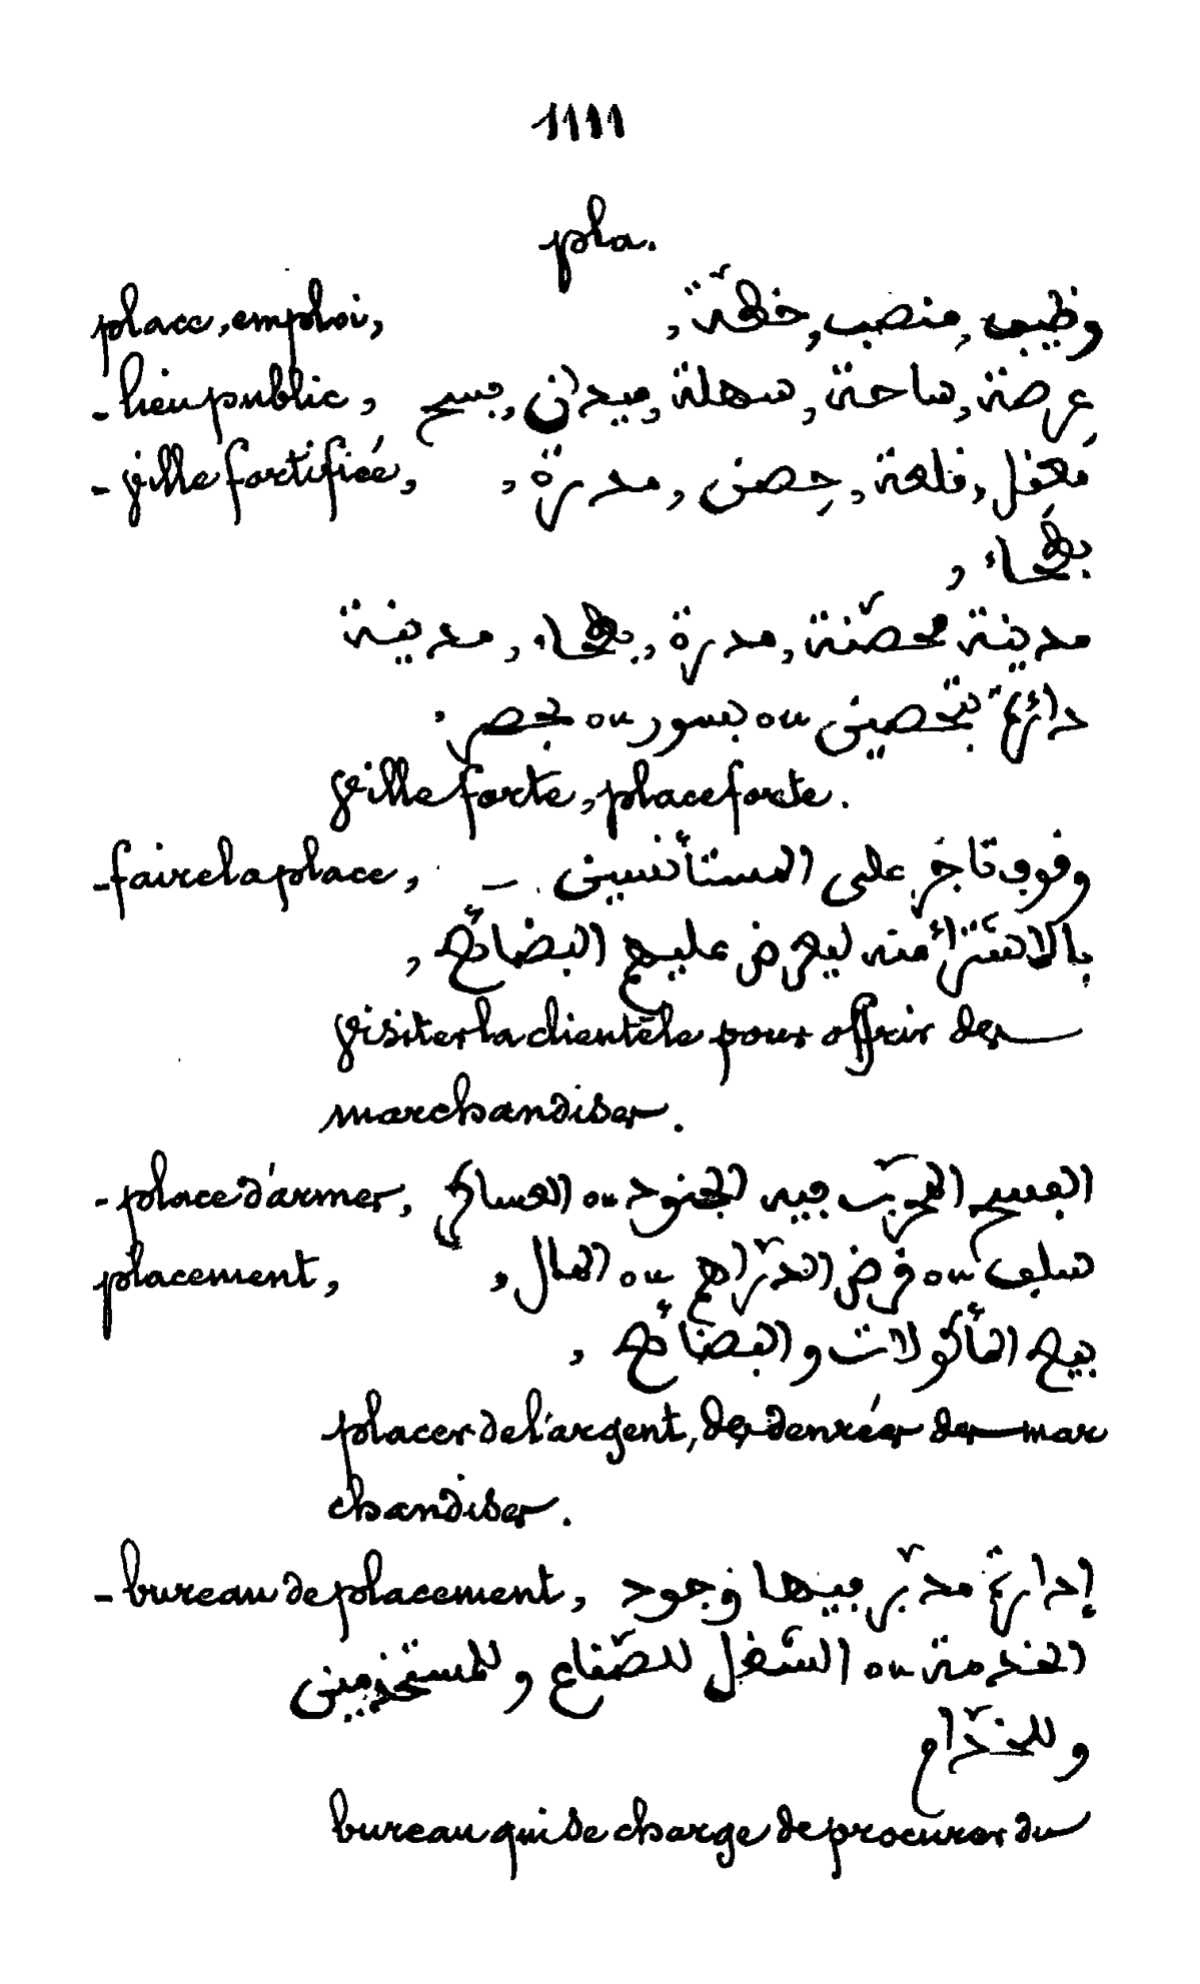 1111
pla.
place, emploi, وظيف, منصب, خطّة,
- lieu public, عرصة, ساحة, سهلة, ميدان, فسح
- ville fortifiée, معقل, قلعة, حِصن, مدرة,
بطحاء,
مدينة محصّنة, مدرة, بطحاء, مدينة
دائرة بتحصين ou بسور ou بحصر.
ville forte, place forte.
- faire la place, وقوف تاجر على المستأنسين
بالاشتراء منه ليعرض عليهم البضائع,
visiter la clientèle pour offrir des
marchandises.
- place d'armes, الفسح المحرّب فيه الجنود ou العساكر
placement, سلف ou قرض الدّراهم ou المال,
بيع المأكولات و البضائع,
placer de l'argent, des denrées des mar
chandises.
- bureau de placement, إدارة مدبّر فيها وجود
الخدمة ou الشّغل للصّنّاع و للمستخدمين
و للخدّام
bureau qui se charge de procurer du